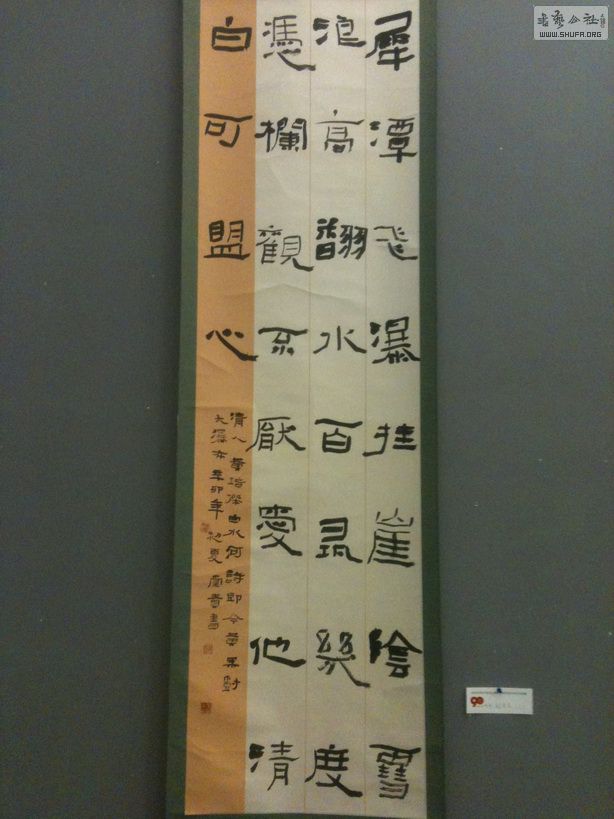 犀潭飛瀑挂崖陰雪
浪高翻水百尋幾度
憑欄觀不厭愛他清
白可盟心
清人黃培傑白水河詩即今黃果樹
大瀑布辛卯年初夏書
書藝公社
WWW.SHUFA.ORG
90